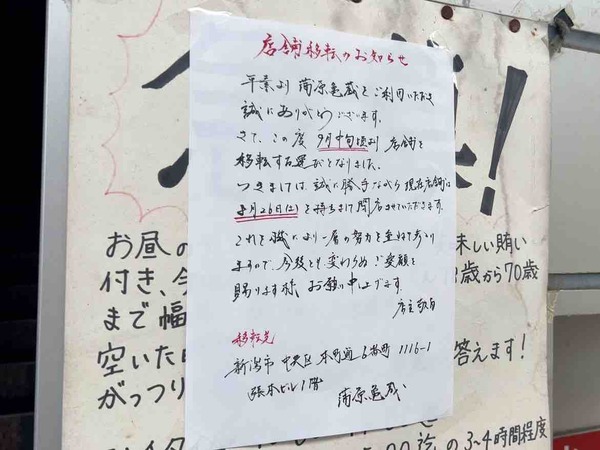 店舗移転のお知らせ
平素より 蒲原亀蔵をご利用いただき
誠にありがとうございます。
さて、この度 9月中旬頃より 店舗を
移転する運びとなりました。
つきましては、誠に勝手ながら 現在店舗は
8月26日(土)を持ちまして閉店させていただきます。
これを機により一層の努力を重ねてまいり
ますので、今後とも変わらぬご愛顧を
賜りますよう お願い申し上げます。
店主敬白
移転先
新潟市 中央区 本町通 6番町 1116-1
張本ビル1階
蒲原亀蔵
お昼の
味しい賄い
付き、
歳から70歳
まで幅
空いた
答えます!
がっつり
迄の3~4時間程度